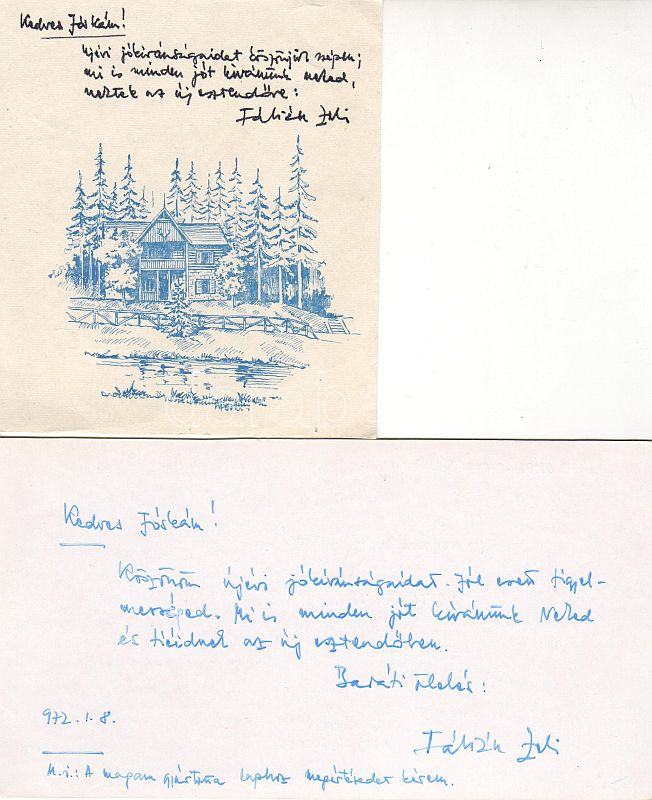 Kedves Jóskám!
Újévi jókivánságaidat köszönjük szépen;
mi is minden jót kivánunk neked,
nektek az új esztendőre:
Fábián Zoli
Kedves Jóskám!
Köszönöm újévi jókivánságaidat. Jól esett figyel-
mességed. Mi is minden jót kivánunk Neked
és tieidnek az új esztendőben.
Baráti ölelés:
972.1.8.
Fábián Zoli
M.i.: A magam gyártotta laphoz megértésedet kérem.